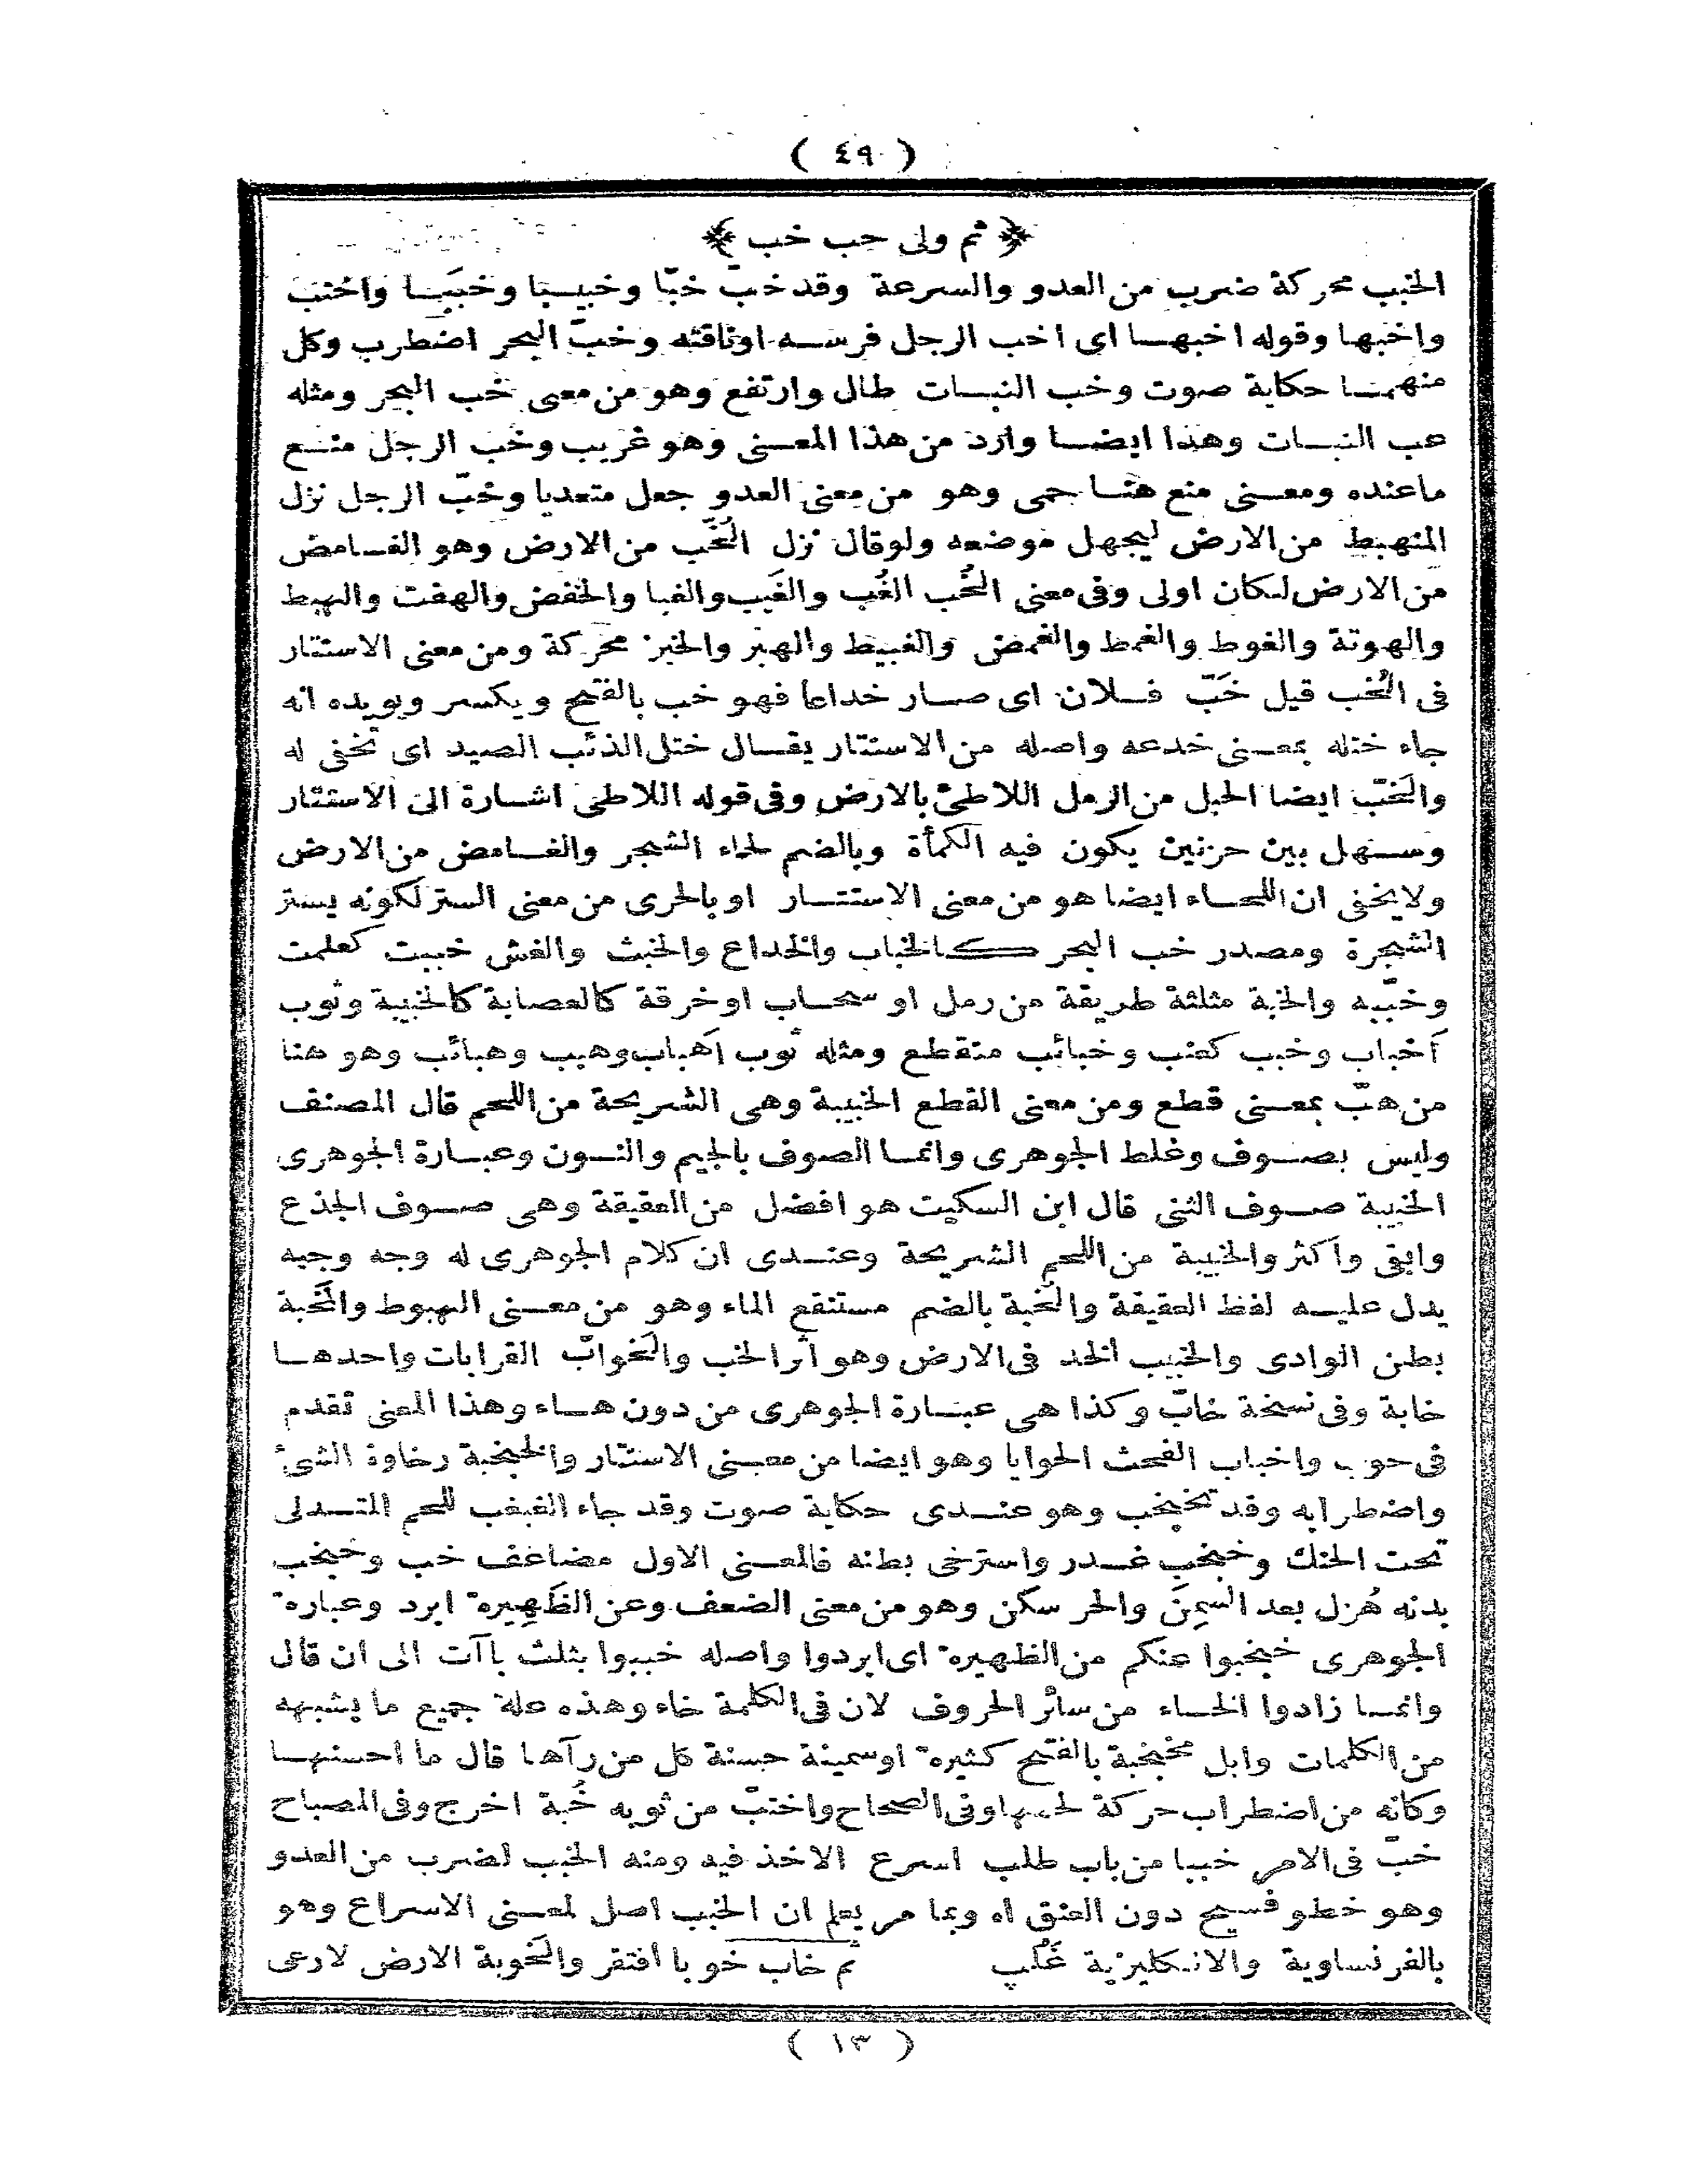 ( ٤٩ )
﴿ ثم ولى حب خب ﴾
الخبب محركة ضرب من العدو والسرعة وقد خبّ خبّا وخبيبا وخبَبا واختب
واخبها وقوله اخبها اى اخب الرجل فرسه اوناقته وخبّ البحر اضطرب وكل
منهما حكاية صوت وخب النبات طال وارتفع وهو من معنى خب البحر ومثله
عب النبات وهذا ايضا وارد من هذا المعنى وهو غريب وخب الرجل منع
ماعنده ومعنى منع هنا حمى وهو من معنى العدو جعل متعديا وخبّ الرجل نزل
المنهبط من الارض ليجهل موضعه ولوقال نزل الخُبّ من الارض وهو الغامض
من الارض لكان اولى وفى معنى الخُب الغُب والغَيب والغبا والخفض والهفت والهبط
والهوتة والغوط والغمط والغمض والغبيط والهبر والخبز محركة ومن معنى الاستتار
فى الخُب قيل خَبّ فلان اى صار خداعا فهو خب بالفتح ويكسر ويويده انه
جاء ختله بمعنى خدعه واصله من الاستتار يقال ختل الذئب الصيد اى تخفى له
والخَبّ ايضا الحبل من الرمل اللاطئ بالارض وفى قوله اللاطى اشارة الى الاستتار
وسهل بين حزنين يكون فيه الكمأة وبالضم لحاء الشجر والغامض من الارض
ولايخفى ان اللحاء ايضا هو من معنى الاستتار او بالحرى من معنى الستر لكونه يستر
الشجرة ومصدر خب البحر كالخباب والخداع والخبث والغش خببت كعلمت
وخبّبه والخبة مثلثة طريقة من رمل او سحاب اوخرقة كالعصابة كالخبيبة وثوب
أخباب وخبب كعنب وخبائب متقطع ومثله ثوب أهباب وهبب وهبائب وهو هنا
من هبّ بمعنى قطع ومن معنى القطع الخبيبة وهى الشريحة من اللحم قال المصنف
وليس بصوف وغلط الجوهرى وانما الصوف بالجيم والنون وعبارة الجوهرى
الخبيبة صوف الثنى قال ابن السكيت هو افضل من العقيقة وهى صوف الجذع
وابقى واكثر والخبيبة من اللحم الشريحة وعندى ان كلام الجوهرى له وجه وجيه
يدل عليه لفظ العقيقة والخُبة بالضم مستنقع الماء وهو من معنى الهبوط والخَبة
بطن الوادى والخبيب الخد فى الارض وهو اثر الخب والخَوابّ القرابات واحدها
خابة وفى نسخة خابّ وكذا هى عبارة الجوهرى من دون هاء وهذا المعنى تقدم
فى حوب واخباب الفحث الحوايا وهو ايضا من معنى الاستتار والخبخبة رخاوة الشئ
واضطرابه وقد تخبخب وهو عندى حكاية صوت وقد جاء الغبغب للحم المتدلى
تحت الحنك وخبخب غدر واسترخى بطنه فالمعنى الاول مضاعف خب وخبخب
بدنه هُزل بعد السمِنَ والحر سكن وهو من معنى الضعف وعن الظَهِيرة ابرد وعبارة
الجوهرى خبخبوا عنكم من الظهيرة اى ابردوا واصله خببوا بثلث باآت الى ان قال
وانما زادوا الخاء من سائر الحروف لان فى الكلمة خاء وهذه علة جميع ما يشبهه
من الكلمات وابل مخبخبة بالفتح كثيرة اوسمينة حسنة كل من رآها قال ما احسنها
وكانه من اضطراب حركة لحمها وفى الصحاح واختبّ من ثوبه خُبة اخرج وفى المصباح
خبّ فى الامر خببا من باب طلب اسرع الاخذ فيه ومنه الخبب لضرب من العدو
وهو خطو فسيح دون العنق اه وبما مر يعلم ان الخبب اصل لمعنى الاسراع وهو
بالفرنساوية والانكليزية غَلُپ ثم خاب خوبا افتقر والخَوبة الارض لارعى
( ١٣ )